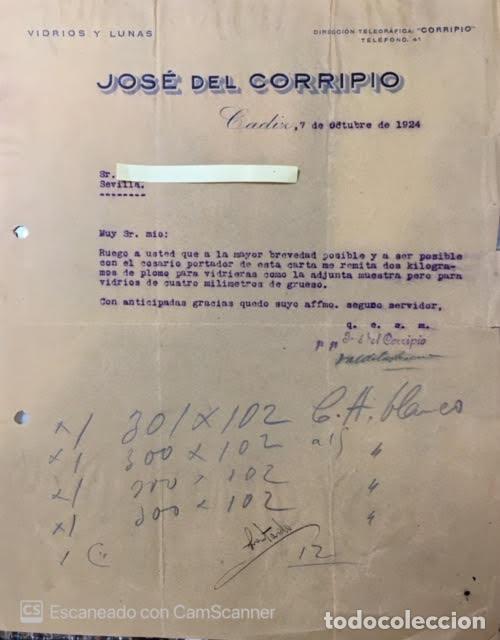 VIDRIOS Y LUNAS
DIRECCIÓN TELEGRÁFICA: "CORRIPIO"
TELÉFONO. 41
JOSÉ DEL CORRIPIO
Cadiz, 7 de octubre de 1924
Sr.
Sevilla.
Muy Sr. mio:
Ruego a usted que a la mayor brevedad posible y a ser posible
con el cosario portador de esta carta me remita dos kilogra-
mos de plomo para vidrieras como la adjunta muestra pero para
vidrios de cuatro milimetros de grueso.
Con anticipadas gracias quedo suyo affmo. seguro servidor,
q. e. s. m.
p p José del Corripio
x1 301 x 102 C. A. blanco
x1 300 x 102 "
x1 300 x 102 "
x1 300 x 102 "
1 C
12
CS Escaneado con CamScanner
todocoleccion